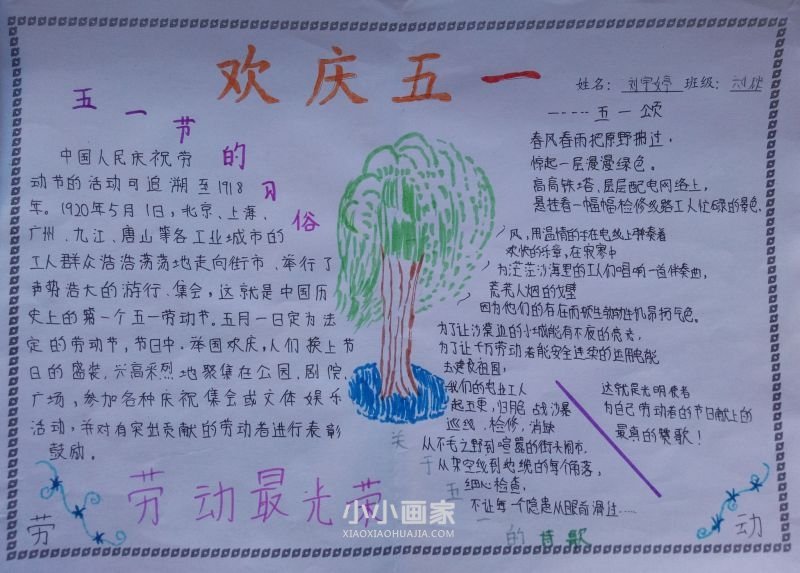 欢庆五一
姓名：刘宇婷 班级：
五一节的习俗
中国人民庆祝劳
动节的活动可追溯至1918
年。1920年5月1日，北京、上海、
广州、九江、唐山等各工业城市的
工人群众浩浩荡荡地走向街市、举行了
声势浩大的游行、集会，这就是中国历
史上的第一个五一劳动节。五月一日定为法
定的劳动节，节日中，举国欢庆，人们换上节
日的盛装，兴高采烈地聚集在公园、剧院、
广场，参加各种庆祝集会或文体娱乐
活动，并对有突出贡献的劳动者进行表彰
鼓励。
劳动最光荣
----五一颂
春风春雨把原野拂过，
惊起一层漫漫绿色。
高高铁塔、层层配电网络上，
是挂着一幅幅检修线路工人忙碌的景色.
风，用温情的手在电线上弹奏着
欢快的乐章，在寂寥中
为茫茫沙海里的工人们唱响一首伴奏曲，
荒芜人烟的戈壁
因为他们的存在而顿生勃勃生机昂扬气色。
为了让沙漠里的小城能有不夜的亮光，
为了让千万劳动者能安全连续的运用电能
去建设祖国，
我们的电业工人
起五更，归脚战沙暴
巡线、检修、消缺
从不毛之野到喧嚣的街头闹市，
从架空线到地缆的每个角落，
细心检查，
不让每个隐患从眼前滑过……
这就是光明使者
为自己劳动者的节日献上的
最真的赞歌！
关于五一的诗歌
劳
动
小小画家
XIAOXIAOHUAJIA.COM